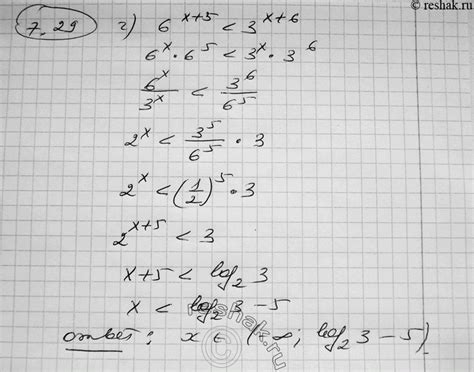 © reshak.ru
7.29 г) 6^(x+5) < 3^(x+6)
6^x · 6^5 < 3^x · 3^6
6^x / 3^x < 3^6 / 6^5
2^x < 3^5 / 6^5 · 3
2^x < (1/2)^5 · 3
2^(x+5) < 3
x+5 < log₂ 3
x < log₂ 3 − 5
ответ: x ∈ (−∞; log₂ 3 − 5)
© reshak.ru